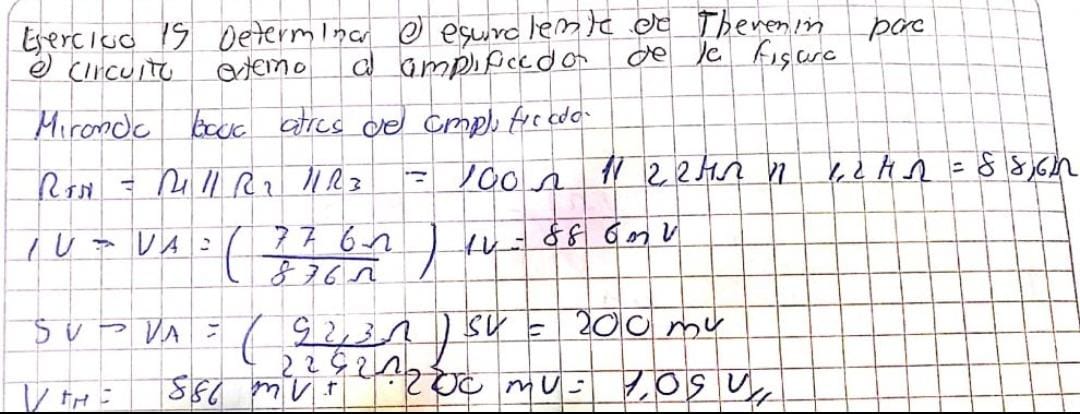 Ejercicio 15 Determinar el equivalente de Thevenin para
el circuito externo al amplificador de la figura
Mirando hacia atras del amplificador
RTH = R1 || R2 || R3 = 100 Ω || 2,2 KΩ || 1,2 KΩ = 88,6 Ω
1V → VA = ( 776 Ω / 876 Ω ) 1V = 886 mV
5V → VA = ( 92,3 Ω / 2292 Ω ) 5V = 200 mV
VTH = 886 mV + 200 mV = 1,09 V //